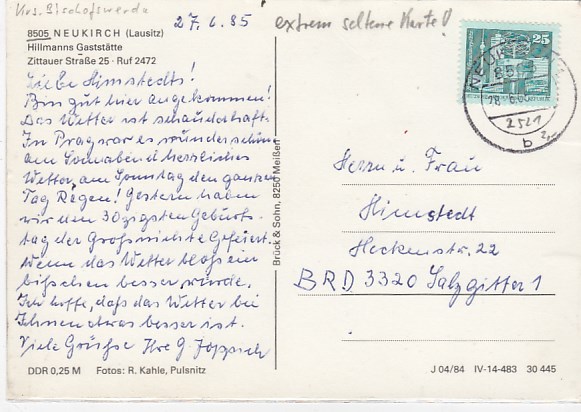 Krs. Bischofswerda
27.6.85
extrem seltene Karte!
8505 NEUKIRCH (Lausitz)
Hillmanns Gaststätte
Zittauer Straße 25 · Ruf 2472
25
Liebe Himstedts!
Bin gut hier angekommen!
Das Wetter ist schauderhaft.
In Prag war es wunderschön
am Sonnabend herrliches
Wetter, am Sonntag den ganzen
Tag Regen! Gestern haben
wir den 30zigsten Geburts-
tag der Großnichte Gefeiert.
Wenn das Wetter bloß ein
bißchen besser würde.
Ich hoffe, daß das Wetter bei
Ihnen etwas besser ist.
Viele Grüße Ihre G
Brück & Sohn, 8250 Meißen
Herrn u. Frau
Himstedt
Heckenstr. 22
BRD 3320 Salzgitter 1
DDR 0,25 M Fotos: R. Kahle, Pulsnitz
J 04/84 IV-14-483 30 445